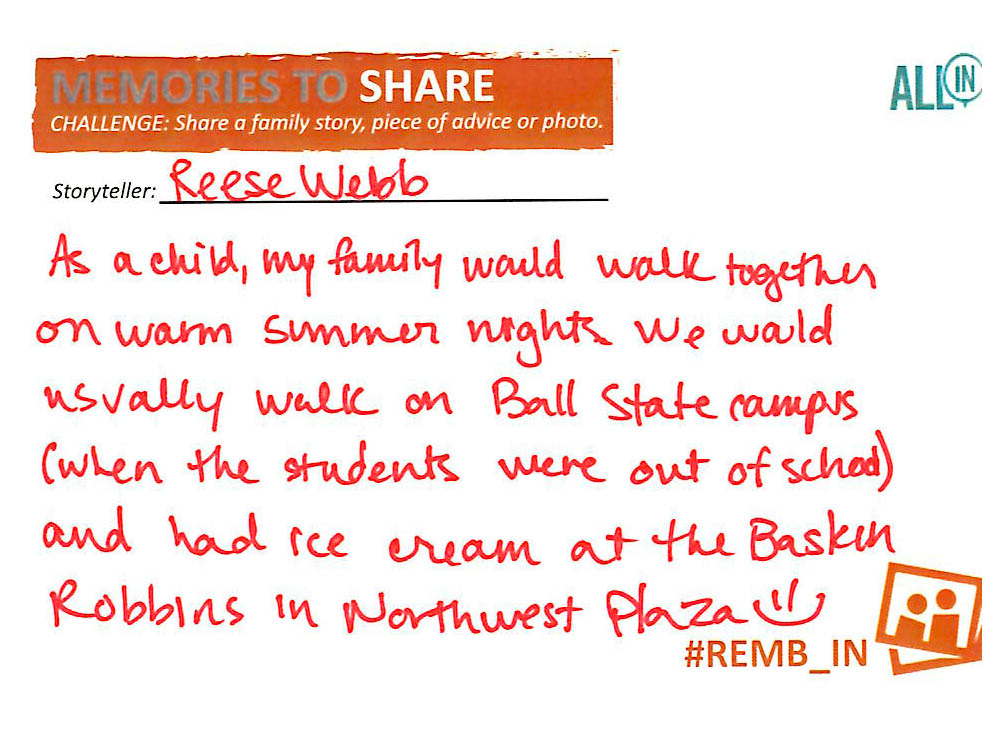 MEMORIES TO SHARE
CHALLENGE: Share a family story, piece of advice or photo.
ALL IN
Storyteller: Reese Webb
As a child, my family would walk together
on warm summer nights. We would
usually walk on Ball State campus
(when the students were out of school)
and had ice cream at the Baskin
Robbins in Northwest Plaza
#REMB_IN